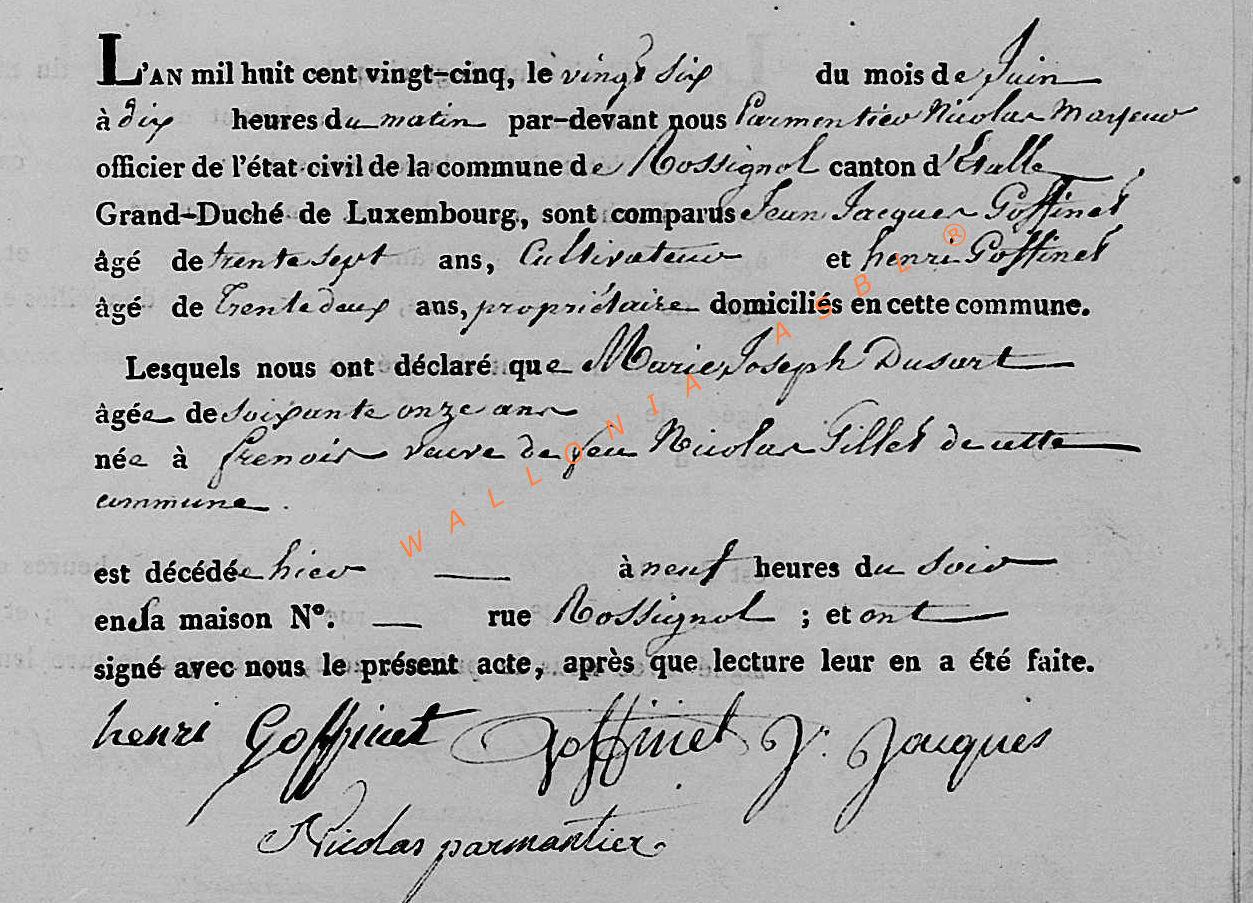 L'AN mil huit cent vingt-cinq, le vingt six du mois de Juin
à dix heures du matin par-devant nous Parmentier Nicolas Mayeur
officier de l'état civil de la commune de Rossignol canton d'Etalle
Grand-Duché de Luxembourg, sont comparus Jean Jacques Goffinet
âgé de trente sept ans, Cultivateur et henri Goffinet
âgé de Trente deux ans, propriétaire domiciliés en cette commune.
Lesquels nous ont déclaré que Marie Joseph Dusart
âgée de soixante onze ans
née à frenois veuve de feu Nicolas Gillet de cette
commune.
est décédée hier à neuf heures du soir
en sa maison N°. rue Rossignol ; et ont
signé avec nous le présent acte, après que lecture leur en a été faite.
henri Goffinet Goffinet Jn. Jacques
Nicolas parmantier
WALLONIA ASBL ®